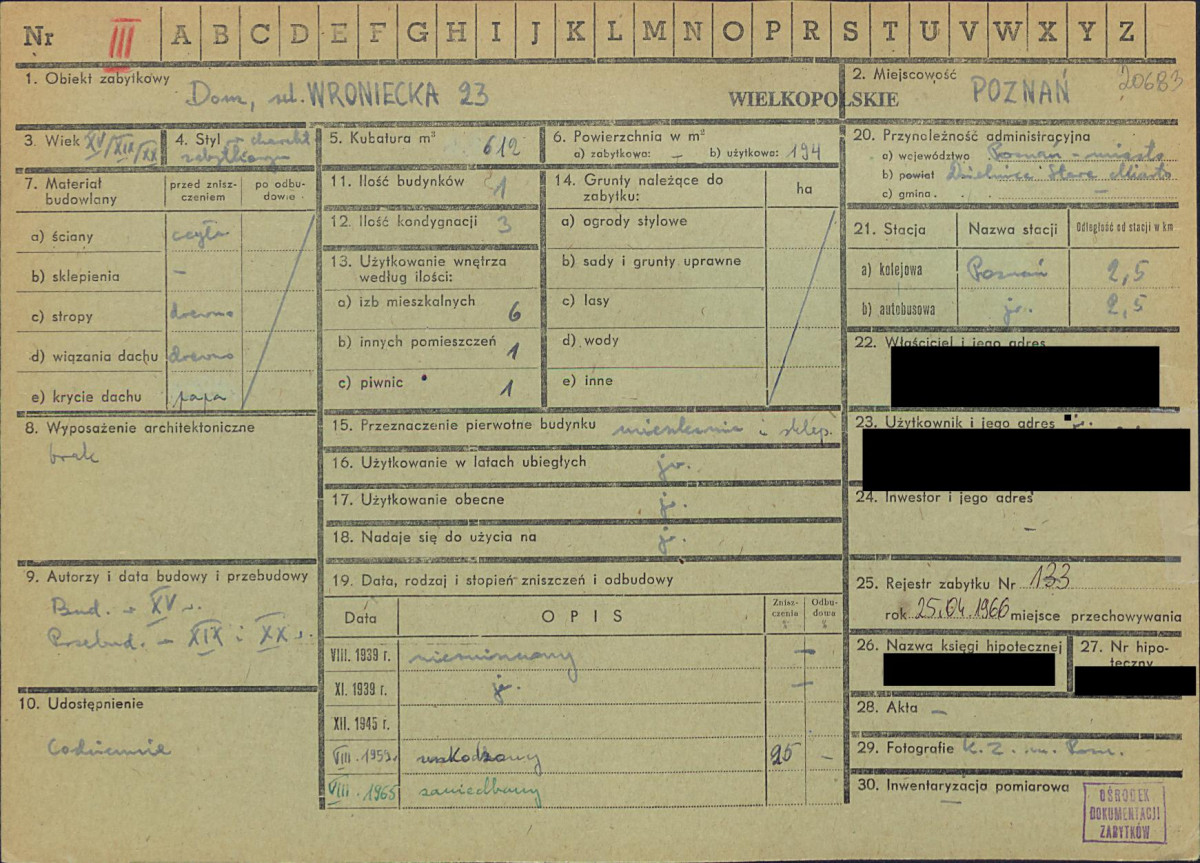 Nr III A B C D E F G H I J K L M N O P R S T U V W X Y Z
1. Obiekt zabytkowy
Dom, ul. WRONIECKA 23
WIELKOPOLSKIE
2. Miejscowość
POZNAŃ
20683
3. Wiek XV/XIX/XX
4. Styl w charakt.
zabytkowym
5. Kubatura m³ 612
6. Powierzchnia w m²
a) zabytkowa: – b) użytkowa: 194
7. Materiał budowlany
przed znisz-
czeniem
po odbu-
dowie
a) ściany cegła
b) sklepienia –
c) stropy drewno
d) wiązania dachu drewno
e) krycie dachu papa
8. Wyposażenie architektoniczne
brak
9. Autorzy i data budowy i przebudowy
Bud. w XV w.
Przebud. w XIX i XX w.
10. Udostępnienie
Codziennie
11. Ilość budynków 1
12. Ilość kondygnacji 3
13. Użytkowanie wnętrza
według ilości:
a) izb mieszkalnych 6
b) innych pomieszczeń 1
c) piwnic 1
14. Grunty należące do
zabytku:
ha
a) ogrody stylowe
b) sady i grunty uprawne
c) lasy
d) wody
e) inne
15. Przeznaczenie pierwotne budynku mieszkania i sklep.
16. Użytkowanie w latach ubiegłych jw.
17. Użytkowanie obecne j.
18. Nadaje się do użycia na j.
19. Data, rodzaj i stopień zniszczeń i odbudowy
Data OPIS
Znisz-
czenia
%
Odbu-
dowa
%
VIII. 1939 r. niezniszczony –
XI. 1939 r. j. –
XII. 1945 r.
VIII. 1959. uszkodzony 25 –
VIII. 1965 zaniedbany
20. Przynależność administracyjna
a) województwo Poznań – miasto
b) powiat Dzielnica Stare Miasto
c) gmina –
21. Stacja Nazwa stacji Odległość od stacji w km
a) kolejowa Poznań 2,5
b) autobusowa jw. 2,5
22. Właściciel i jego adres
23. Użytkownik i jego adres j.
24. Inwestor i jego adres
–
25. Rejestr zabytku Nr 133
rok 25.04.1966 miejsce przechowywania
26. Nazwa księgi hipotecznej
27. Nr hipo-
teczny
28. Akta –
29. Fotografie K. Z. m. Pozn.
30. Inwentaryzacja pomiarowa
–
OŚRODEK
DOKUMENTACJI
ZABYTKÓW